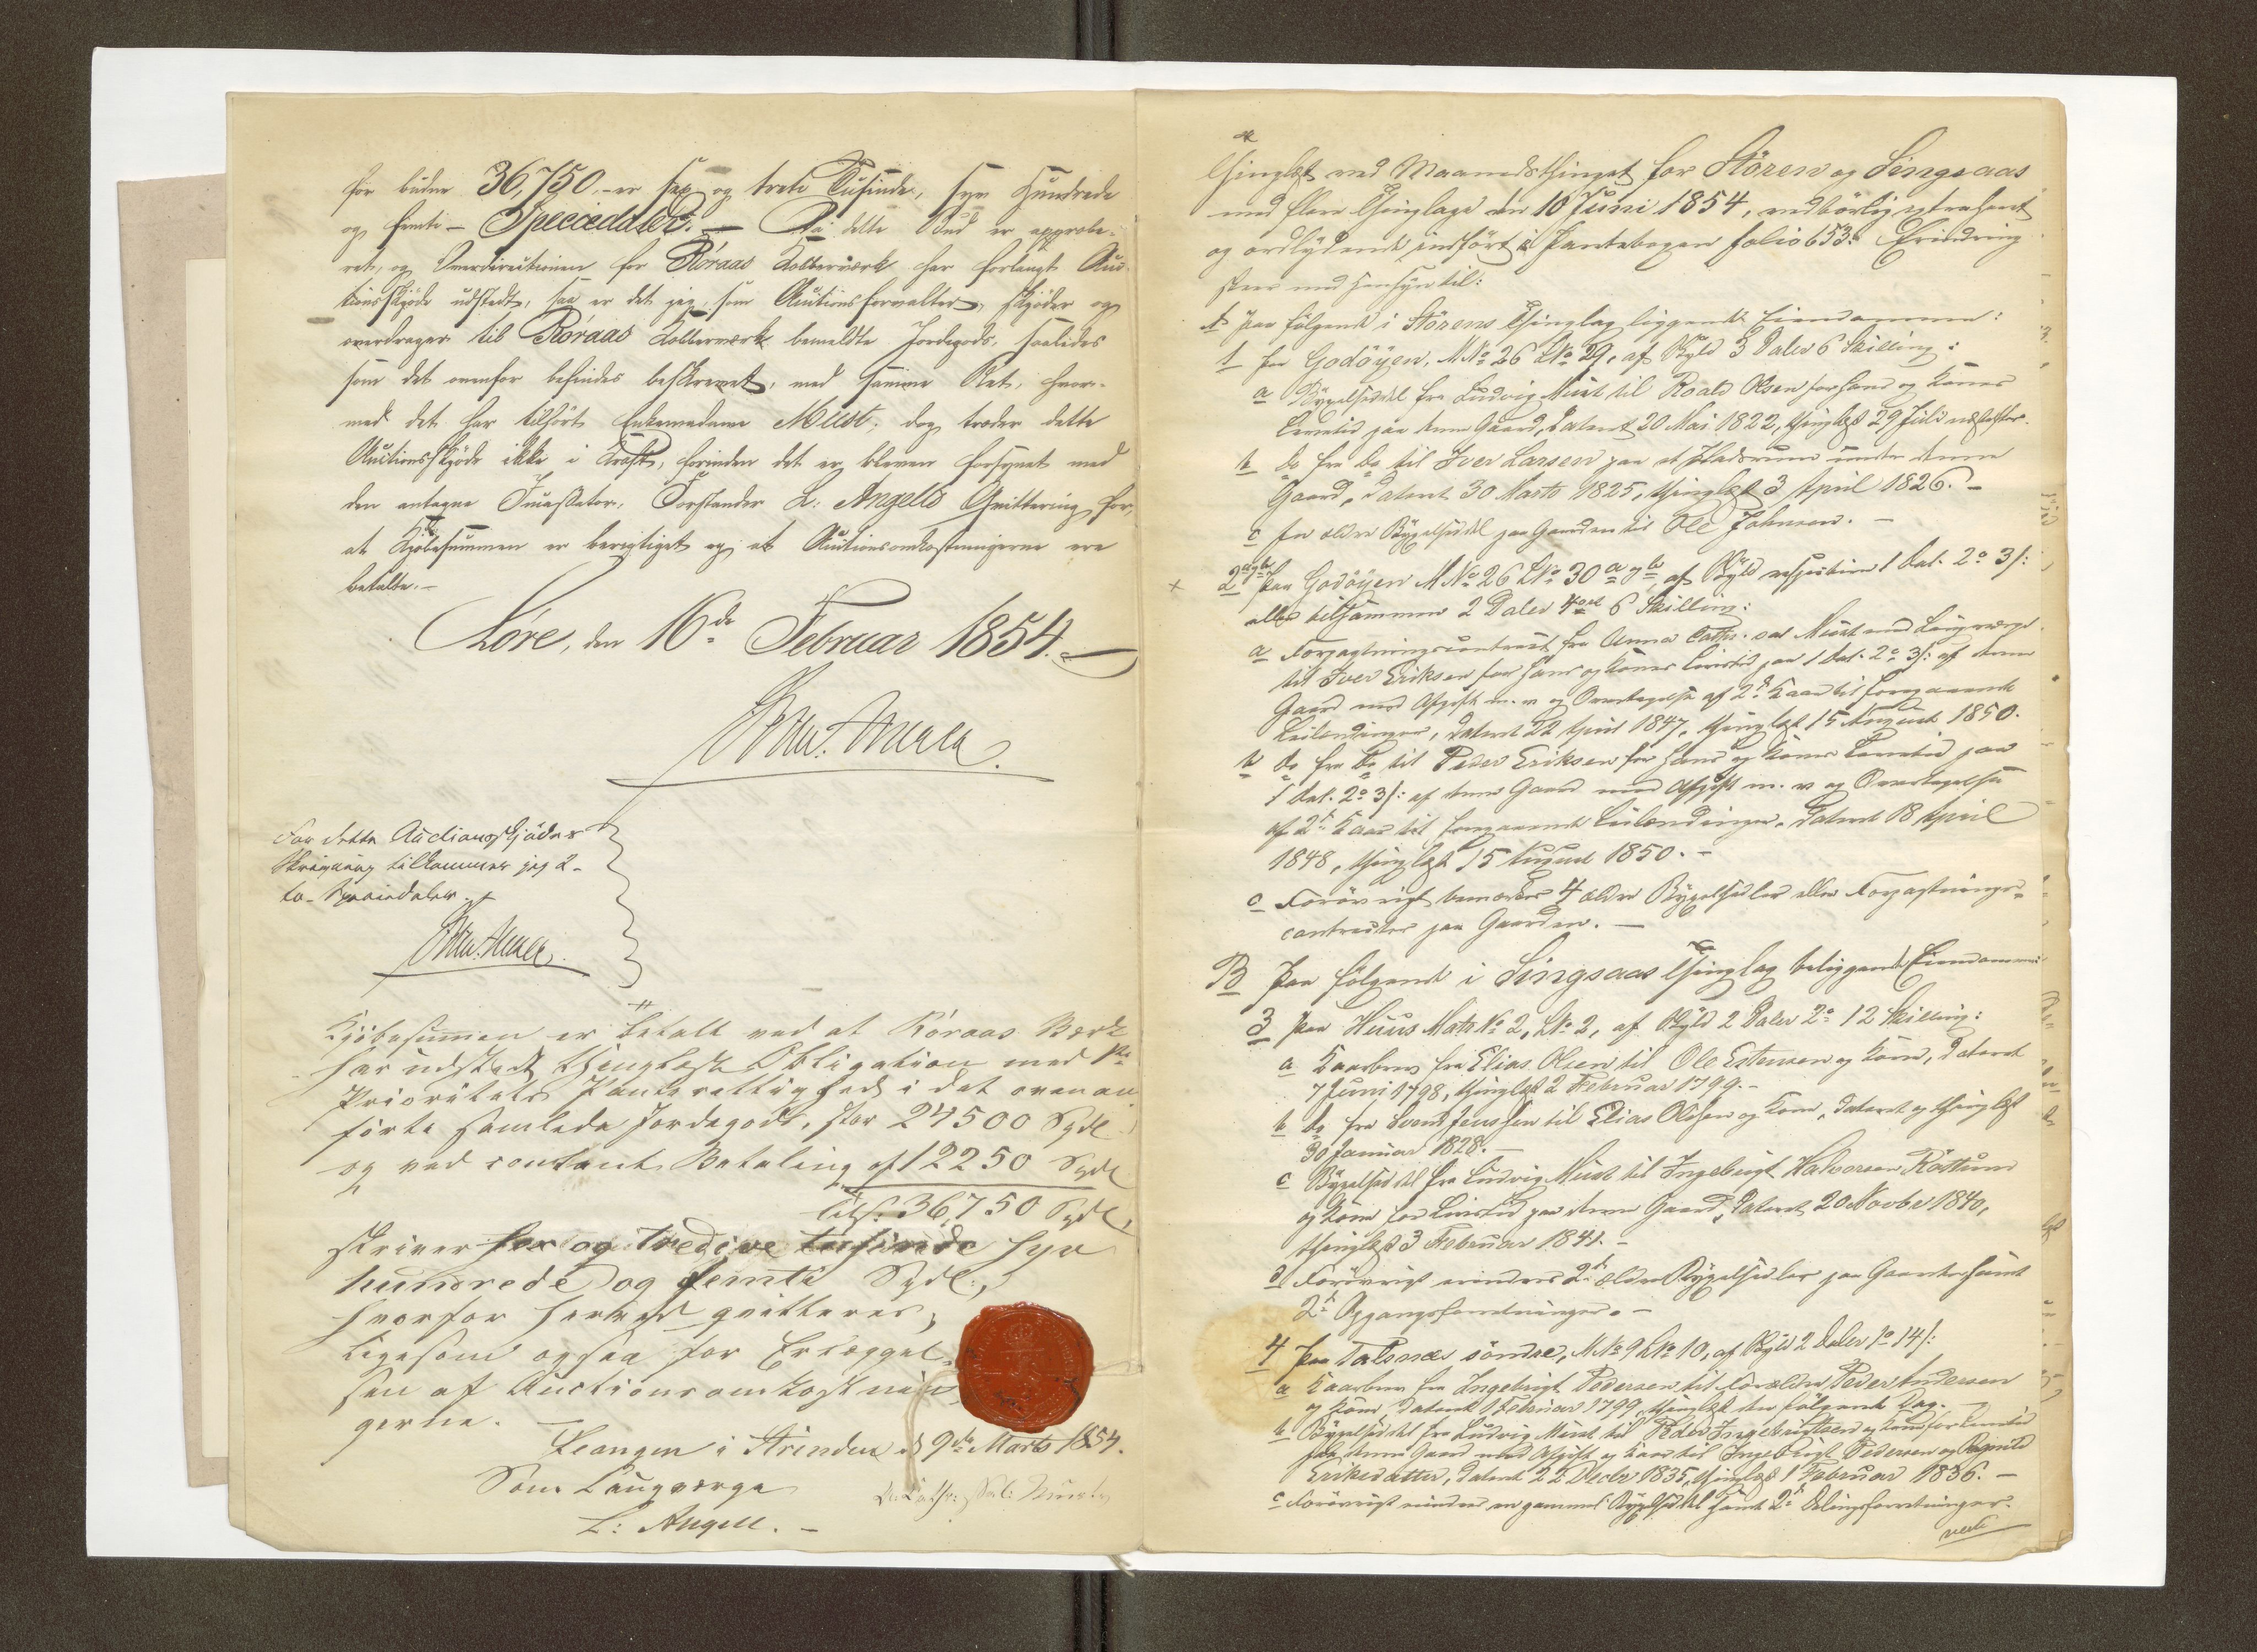 for buden 36,750 - er sex og treti Tusinde, syv Hundrede
og femti - Speciedaler. - Da dette Bud er approbe-
ret, og Overdirectionen for Röraas Kobberværk har forlangt Auc-
tionsskjöde udstedt, saa er det jeg, som Auctionsforvalter, skjöder og
overdrager til Röraas Kobberværk bemeldte Jordegods, saaledes
som det ovenfor befindes beskrevet, med samme Ret, hvor-
med det har tilhört Enkemadame Müst; dog træder dette
Auctionsskjöde ikke i Kraft, forinden det er bleven forsynet med
den antagne Incassator, Forstander L: Angells Qvittering for,
at Kjöbesummen er berigtiget og at Auctionsomkostningerne ere
betalte. -
Støre, den 16de Februar 1854. -
For dette Auctionsskjödes
Skrivning tilkommer jeg 2 -
to - Speciedaler.
Kjöbesummen er betalt ved at Röraas Værk
har udstedt thinglæst Obligation med 1ste
Prioritets Panterettighed i det ovenan-
förte samlede Jordegods, stor 24500 Spdl
og ved contant Betaling af 12250 Spdl
Tils: 36,750 Spdl,
skriver sex og tredive tusinde syv
hundrede og femti Spdl:,
hvorfor herved qvitteres,
ligesom ogsaa for Erlæggel-
sen af Auctionsomkostnin-
gerne. -
Leangen i Strinden d 9de Marts 1854.
Som Laugværge
L: Angell. -
Thinglæst ved Maanedsthinget for Stören og Singsaas
med flere Thinglage den 10 Juni 1854, vedbörlig extraheret
og ordlydende indfört i Pantebogen folio 653. Erindring
skeer med Hensyn til:
A Paa fölgende i Störens Thinglag liggende Eiendomme:
1 paa Godöyen, M No 26 L No 29, af Skyld 3 Daler 6 Skilling:
a Bygselseddel fra Ludvig Müst til Roald Olsen for hans og Kones
Levetid paa denne Gaard, dateret 20 Mai 1822, thinglæst 29 Juli næstefter.
b do fra do til Iver Larsen paa et Pladsrum under denne
Gaard, dateret 30 Marts 1825, thinglæst 3 April 1826. -
c en ældre Bygselseddel paa Gaarden til Ole Johnsen. -
2 a og b paa Godöyen M No 26 L No 30 a og b, af Skyld respective 1 Dal. 2o 3 s:
eller tilsammen 2 Daler 4 ort 6 Skilling:
a Forpagtningscontract fra Anna Cathr. sal Müst med Laugværge
til Iver Eriksen for hans og Kones Levetid paa 1 Dal. 2o 3 s: af denne
Gaard med Afgift m. v og Overtagelse af 2de Kaar til foregaaende
Leilændinger, dateret 22 April 1847, thinglæst 15 August 1850.
b do fra do til Peder Eriksen for hans og Kones Levetid paa
1 Dal. 2o 3 s: af denne Gaard med Afgift m. v og Overtagelse
af 2de Kaar til foregaaende Leilændinger, dateret 18 April
1848, thinglæst 15 August 1850. -
c Forövrigt bemærkes 4 ældre Bygselsedler eller Forpagtnings-
contracter paa Gaarden. -
B Paa fölgende i Singsaas Thinglag beliggende Eiendomme:
3 paa Huus Matr No 2, L No 2, af Skyld 2 Daler 2o 12 Skilling:
a Kaarbrev fra Elias Olsen til Ole Estensen og Kone, dateret
7 Juni 1798, thinglæst 2 Februar 1799. -
b do fra Svend Jenssen til Elias Olsen og Kone, dateret og thinglæst
30 Januar 1828. -
c Bygselseddel fra Ludvig Müst til Ingebrigt Halvorsen Röttum
og Kone for Levetid paa denne Gaard, dateret 20 Novbr 1840,
thinglæst 3 Februar 1841. -
d Forövrigt erindres 2de ældre Bygselsedler paa Gaarden samt
2de Opgangsforretninger. -
4 paa Talsnes söndre, M No 9 L No 10, af Skyld 2 Daler 1o 14 s:
a Kaarbrev fra Ingebrigt Pedersen til Forældre Peder Andersen
og Kone, dateret 1 Februar 1799, thinglæst den fölgende Dag. -
b Bygselseddel fra Ludvig Müst til Peder Ingebrigtsen og Kone for Levetid
paa denne Gaard med Afgift og Kaar til Ingebrigt Pedersen og
Eriksdatter, dateret 22 Decbr 1835, thinglæst 1 Februar 1836. -
c Forövrigt erindres en gammel Bygselseddel samt 2de Delingsforretninger.